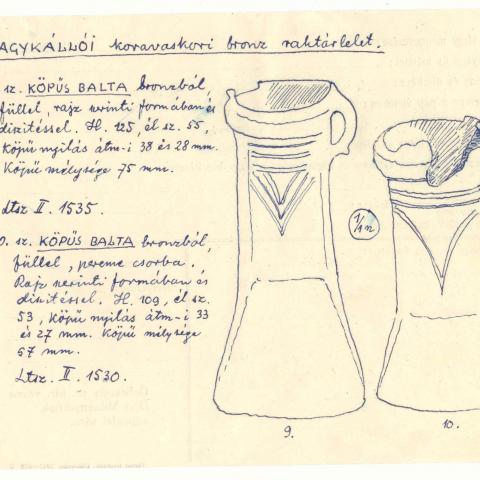 AGYKÁLLÓI koravaskori bronz raktárlelet.
sz. KÖPŰS BALTA bronzból,
füllel, rajz szerinti formában és
díszítéssel. H. 125, él sz. 55,
Köpű nyílás átm-i 38 és 28 mm.
Köpű mélysége 75 mm.
Ltsz. II. 1535.
0. sz. KÖPŰS BALTA bronzból,
füllel, pereme csorba.
Rajz szerinti formában és
díszítéssel. H. 109, él sz.
53, Köpű nyílás átm-i 33
és 27 mm. Köpű mélysége
67 mm.
Ltsz. II. 1530.
1/1 n
9.
10.